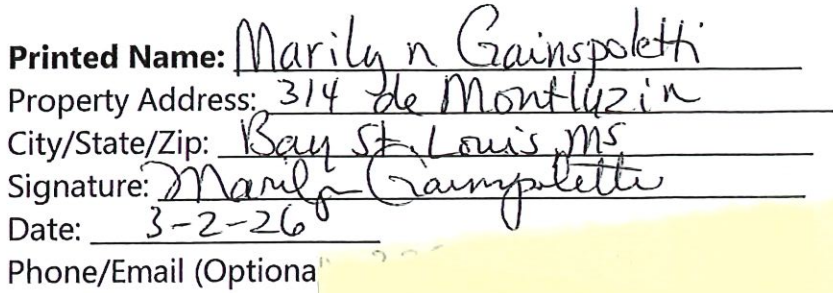 Printed Name: Marilyn Gainspoletti
Property Address: 314 de Montluzin
City/State/Zip: Bay St. Louis, MS
Signature: Marilyn Gainspoletti
Date: 3-2-26
Phone/Email (Optional